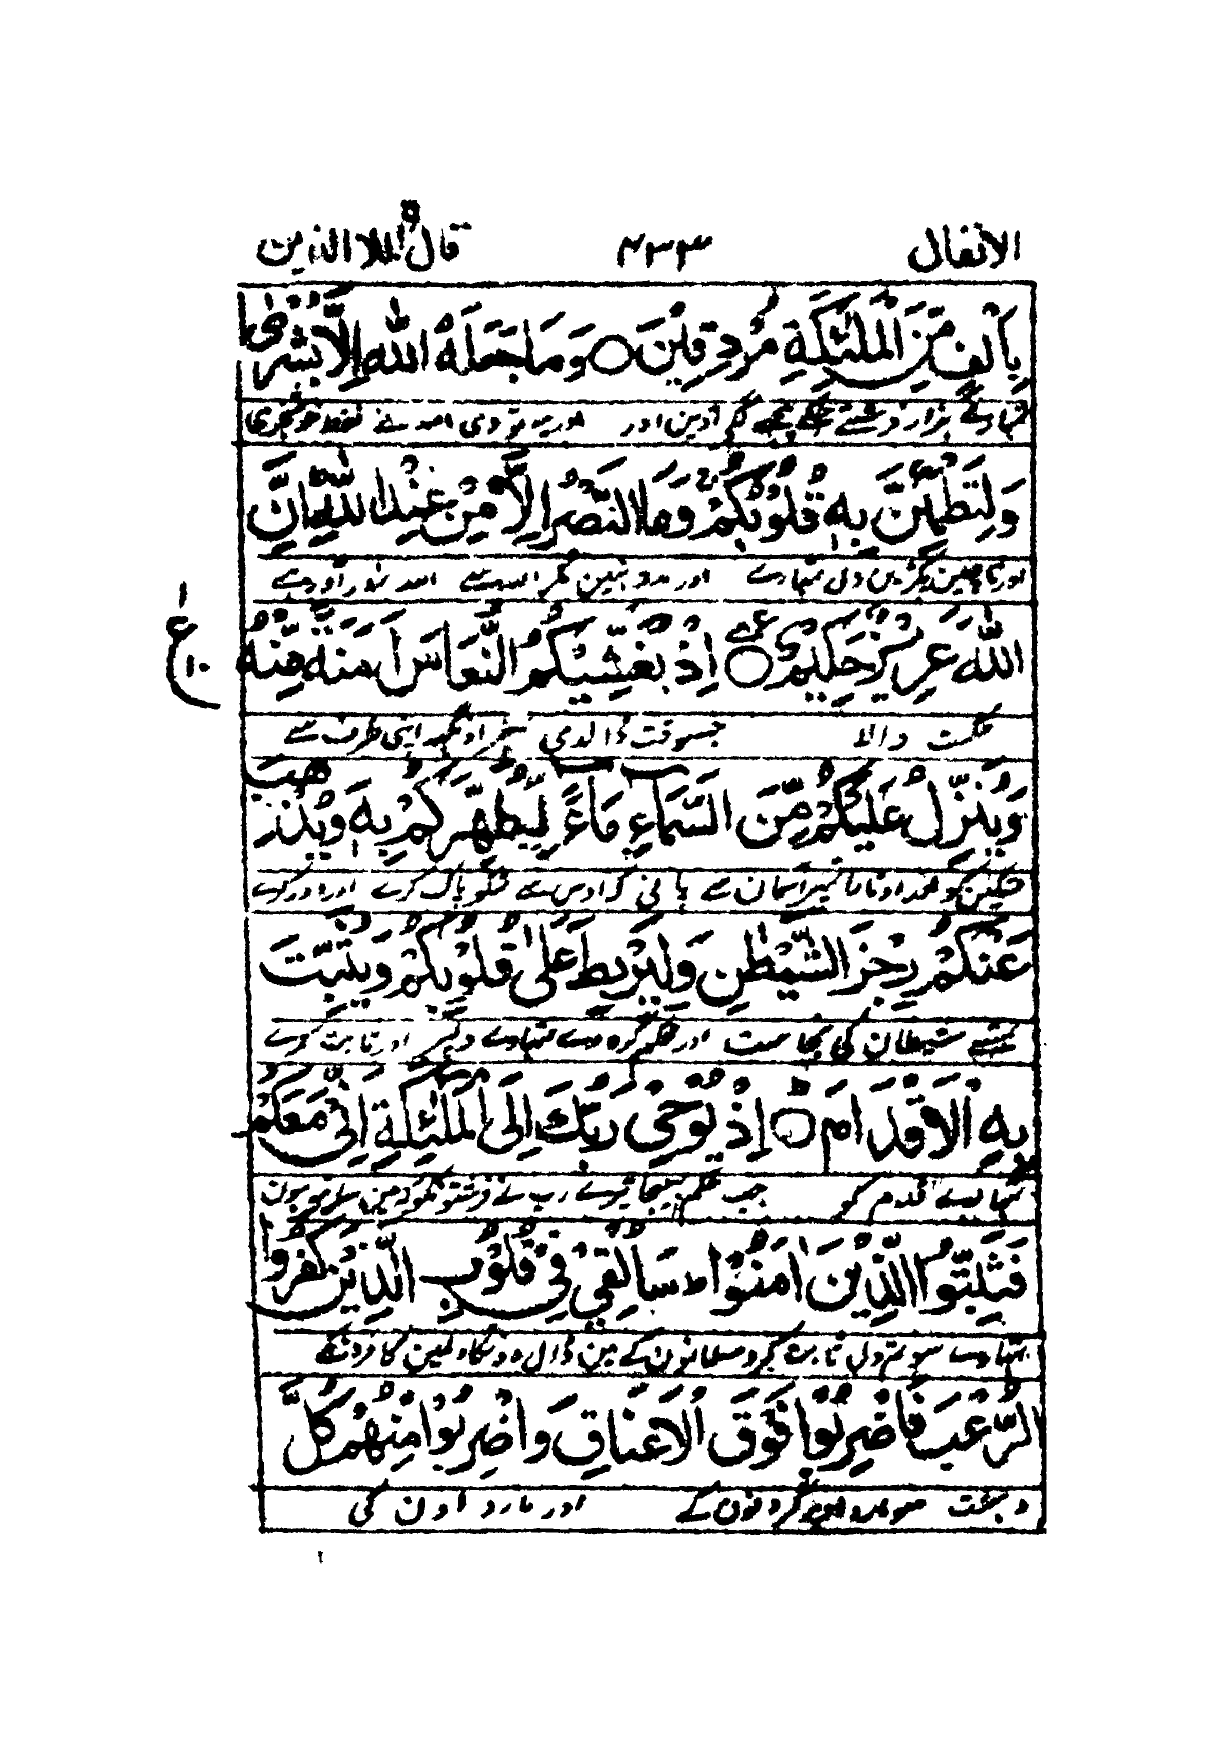 الانفال ۴۳۳ قال الملا الذین
بِاَلْفٍ مِّنَ الْمَلٰٓئِكَةِ مُرْدِفِیْنَ ○ وَمَا جَعَلَهُ اللّٰهُ اِلَّا بُشْرٰی
ہزار فرشتے اور اللہ نے فقط خوشخبری
وَلِتَطْمَئِنَّ بِهٖ قُلُوْبُكُمْ وَمَا النَّصْرُ اِلَّا مِنْ عِنْدِ اللّٰهِ اِنَّ
دل تمہارے اور مدد نہین مگر اللہ سے اللہ زور آور ہے
اللّٰهَ عَزِیْزٌ حَكِیْمٌ ○ اِذْ یُغَشِّیْكُمُ النُّعَاسَ اَمَنَةً مِّنْهُ
ع ۱۰
حکمت والا جسوقت ڈالدی اونگھ اپنی طرف سے
وَیُنَزِّلُ عَلَیْكُمْ مِّنَ السَّمَآءِ مَآءً لِّیُطَهِّرَكُمْ بِهٖ وَیُذْهِبَ
اوتارا تمپر آسمان سے پانی کہ اوس سے تمکو پاک کرے اور دور کرے
عَنْكُمْ رِجْزَ الشَّیْطٰنِ وَلِیَرْبِطَ عَلٰی قُلُوْبِكُمْ وَیُثَبِّتَ
تمسے شیطان کی نجاست اور محکم گرہ دے تمہارے دلپر اور ثابت کرے
بِهِ الْاَقْدَامَ ○ اِذْ یُوْحِیْ رَبُّكَ اِلَی الْمَلٰٓئِكَةِ اِنِّیْ مَعَكُمْ
تمہارے قدم کو جب حکم بھیجا تیرے رب نے فرشتونکو کہ مین ساتھ ہون
فَثَبِّتُوا الَّذِیْنَ اٰمَنُوْا ؕ سَاُلْقِیْ فِیْ قُلُوْبِ الَّذِیْنَ كَفَرُوا
تمہارے سو تم دل ثابت کرو مسلمانون کے مین ڈال دونگا دلمین کافرونکے
الرُّعْبَ فَاضْرِبُوْا فَوْقَ الْاَعْنَاقِ وَاضْرِبُوْا مِنْهُمْ كُلَّ
دہشت سو مارو گردنون کے اور مارو اون کی